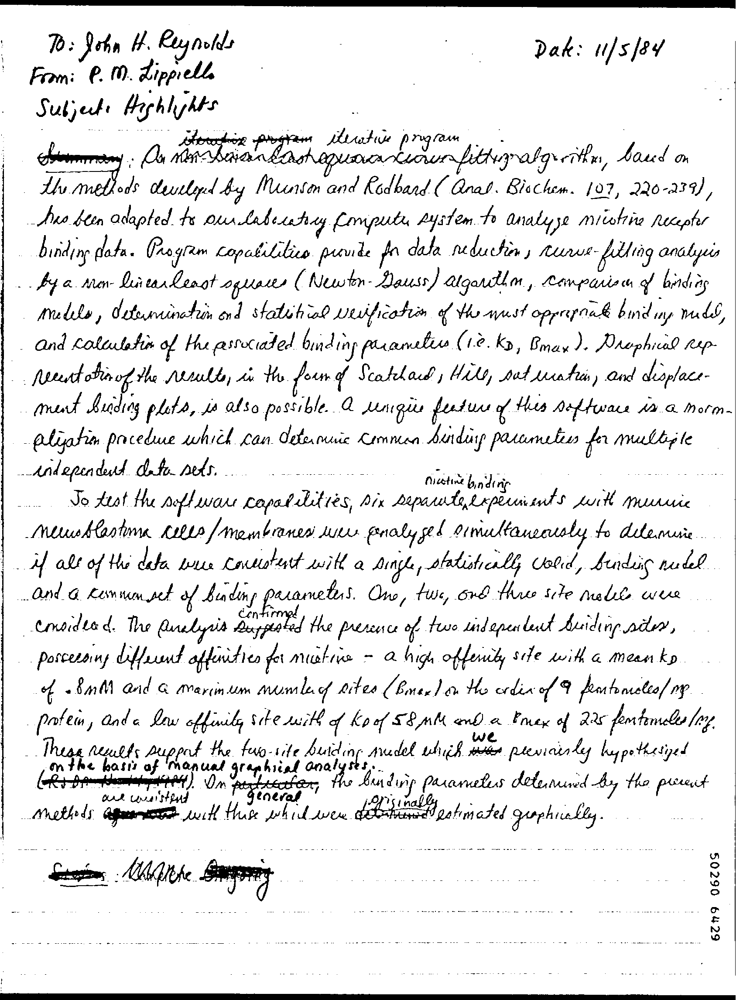 To: John H. Reynolds
Date: 11/5/84
From: P. M. Lippiello
Subject: Highlights
iterative program iterative program
Summary: An non-linear least squares curve fitting algorithm, based on
the methods developed by Munson and Rodbard (Anal. Biochem. 107, 220-239),
has been adapted to our laboratory computer system to analyze nicotine receptor
binding data. Program capabilities provide for data reduction, curve-fitting analysis
by a non-linear least squares (Newton-Gauss) algorithm, comparison of binding
models, determination and statistical verification of the most appropriate binding model,
and calculation of the associated binding parameters (i.e. KD, Bmax). Graphical rep-
resentation of the results, in the form of Scatchard, Hill, saturation, and displace-
ment binding plots, is also possible. A unique feature of this software is a norm-
alization procedure which can determine common binding parameters for multiple
independent data sets.
nicotine binding
To test the software capabilities, six separate experiments with murine
neuroblastoma cells/membranes were analyzed simultaneously to determine
if all of the data were consistent with a single, statistically valid, binding model
and a common set of binding parameters. One, two, and three site models were
confirmed
considered. The analysis suggested the presence of two independent binding sites,
possessing different affinities for nicotine - a high affinity site with a mean KD
of .8 nM and a maximum number of sites (Bmax) on the order of 9 femtomoles/mg
protein, and a low affinity site with of KD of 58 nM and a Bmax of 225 femtomoles/mg.
we
These results support the two-site binding model which was previously hypothesized
on the basis of manual graphical analyses.
In particular, the binding parameters determined by the present
general
are consistent originally
methods agree with those which were determined estimated graphically.
Status: Complete Ongoing
50290 6429